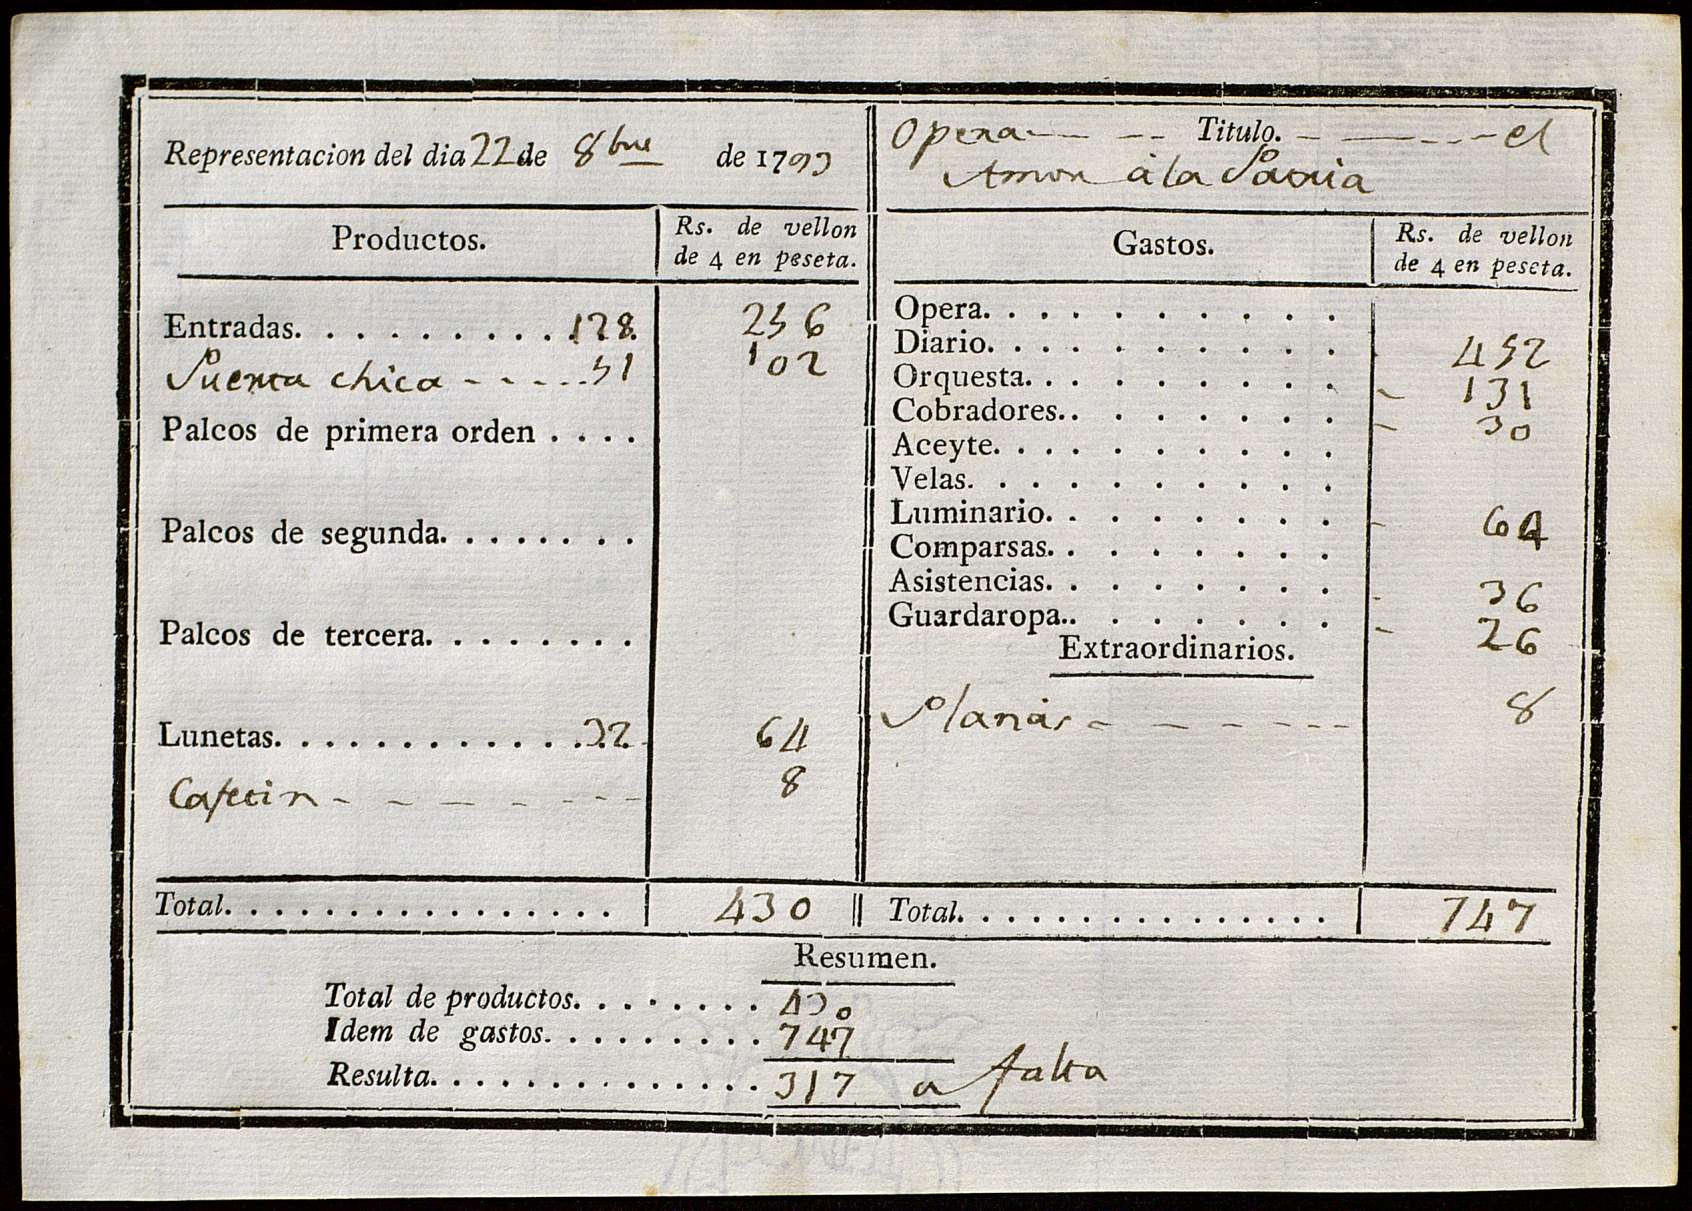 Representacion del dia 22 de 8bre de 1793
Opera - - - - Titulo. - - - - el
Amor à la Patria
Productos.
Rs. de vellon
de 4 en peseta.
Entradas. . . . . . . . . . 128. 256
Puerta chica - - - - . . 51 102
Palcos de primera orden . . . .
Palcos de segunda. . . . . . . .
Palcos de tercera. . . . . . . .
Lunetas. . . . . . . . . . . . . 32. 64
Cafetin - - - - - - - - 8
Total. . . . . . . . . . . . . . . . 430
Gastos.
Rs. de vellon
de 4 en peseta.
Opera. . . . . . . . . . .
Diario. . . . . . . . . . . 452
Orquesta. . . . . . . . . 131
Cobradores.. . . . . . . 30
Aceyte. . . . . . . . . . .
Velas. . . . . . . . . . .
Luminario. . . . . . . . 64
Comparsas. . . . . . . .
Asistencias. . . . . . . . 36
Guardaropa.. . . . . . . 26
Extraordinarios.
- - - - - - - 8
Total. . . . . . . . . . . . . . . . 747
Resumen.
Total de productos. . . . . . . . 430
Idem de gastos. . . . . . . . . . 747
Resulta. . . . . . . . . . . . . . . 317 a falta